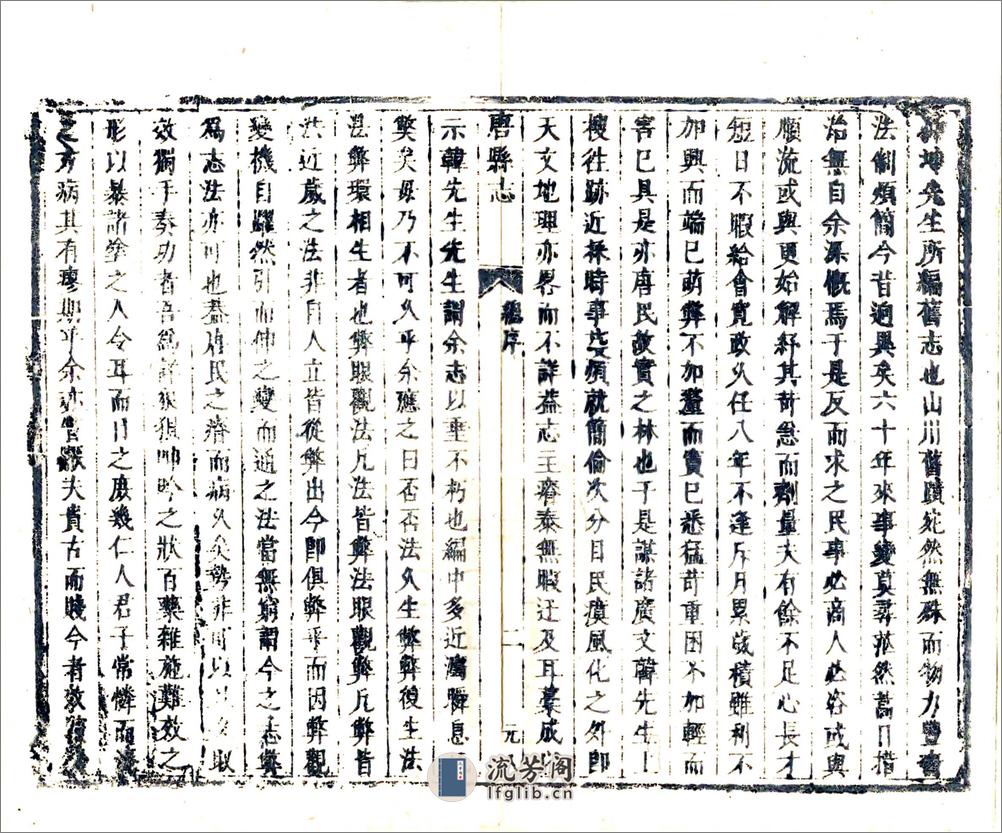 坤先生所編舊志也山川舊蹟宛然無殊而物力豐
法制煩簡今昔逈異矣六十年來事變莫尋茫然蒿目措
治無自余深慨焉于是反而求之民事必商人必咨或與
順流或與更始解紓其苛急而劑量夫有餘不足心長才
短日不暇給會竟政久任八年不逢斥月累歲積雖利不
加興而端已萌弊不加釐而竇已悉猛苛重困不加輕而
害已具是亦唐民故實之林也于是謀諸廣文韓先生上
搜往跡近採時事芟煩就簡倫次分目民瘼風化之外即
天文地理亦畧而不詳蓋志主瘠泰無暇迂及耳藁成
唐縣志
舊序
二
元
示韓先生先生謂余志以垂不朽也編中多近屬瞬息
獘矣毋乃不可久乎余應之曰否否法久生弊弊復生法
法弊環相生者也弊眼觀法凡法皆弊法眼觀弊凡弊皆
法近歲之法非自人立皆從弊出今即俱弊乎而因弊觀
變機自躍然引而伸之變而通之法當無窮謂今之志弊
爲志法亦可也蓋唐民之瘠而病久矣勢非可以取
效獨于奏功者吾爲詳狀狼呻吟之狀百藥雜施難效之
形以暴諸筆之人今耳而目之庶幾仁人君子常憐而
之方病其有瘳期乎余夫貴古而賤今者效
流芳阁
lfglib.cn